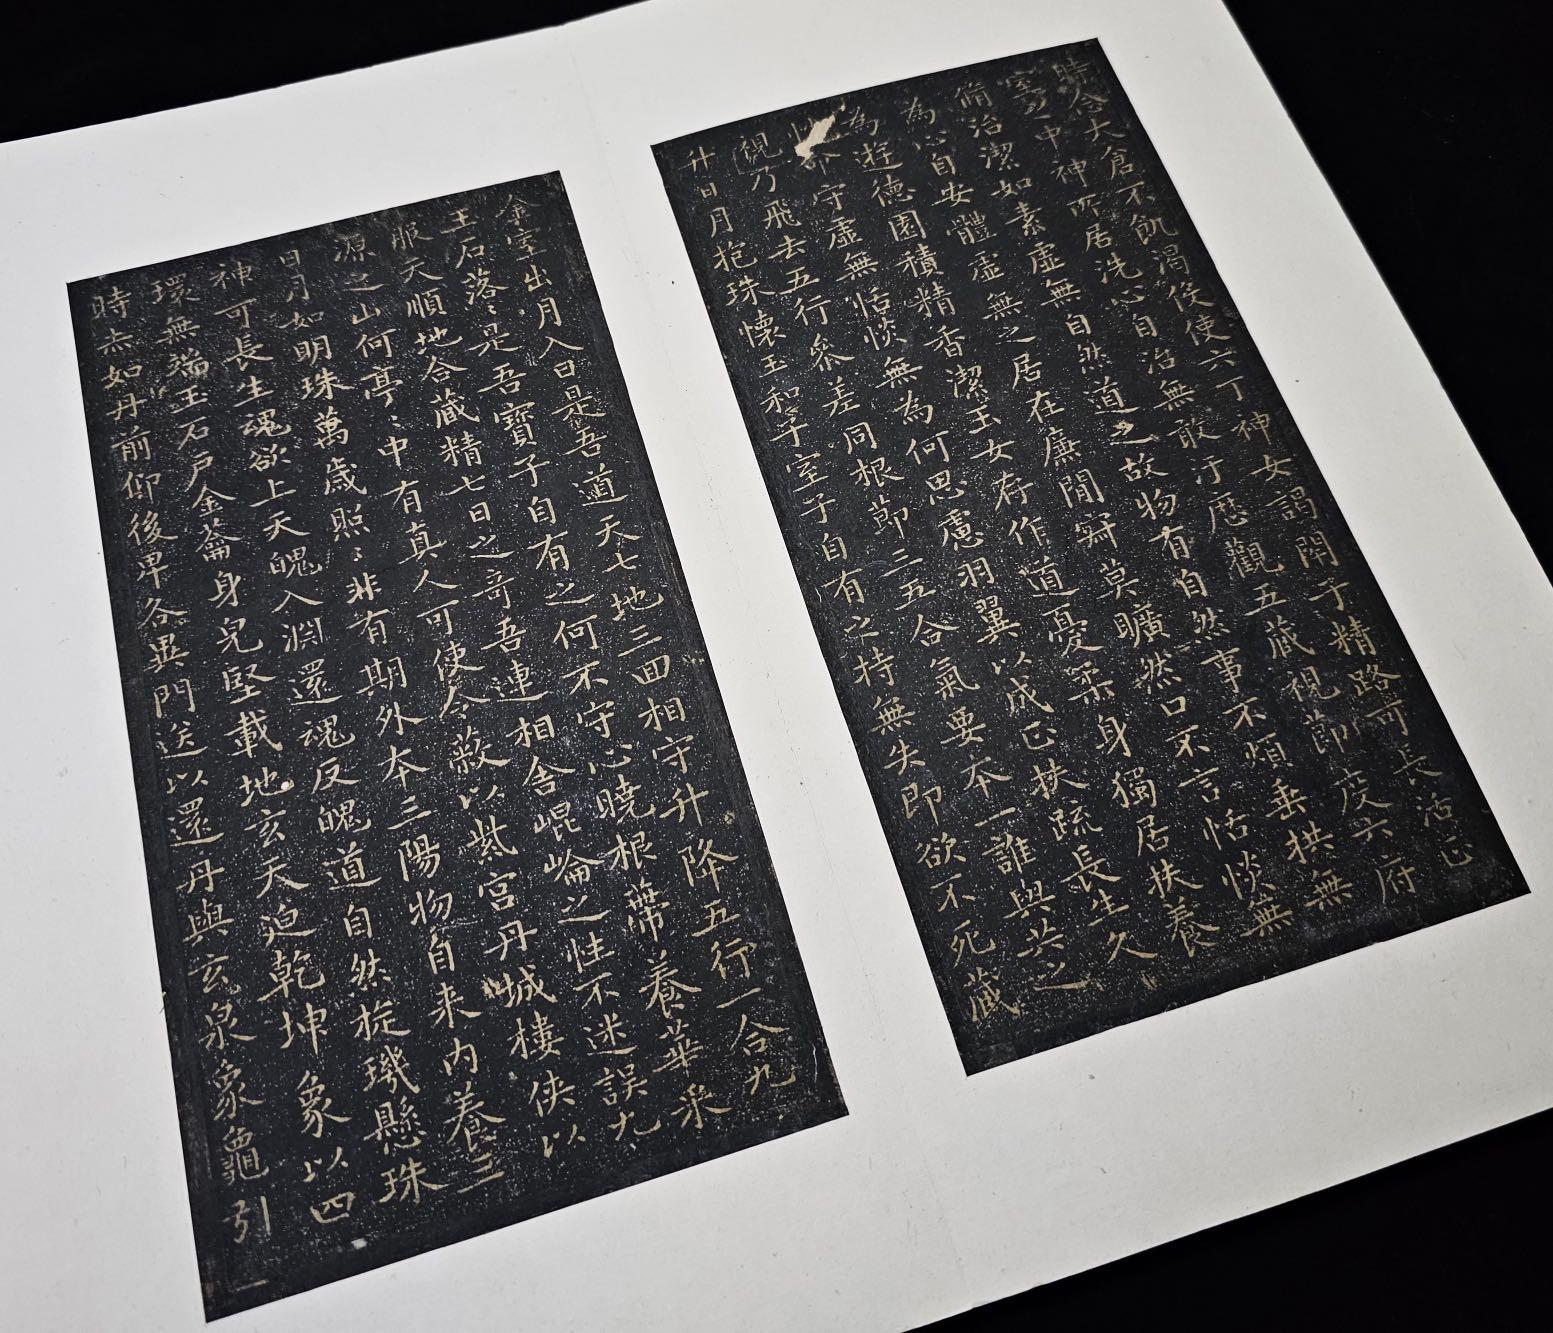 時念大倉不飢渴役使六丁神女謁閇子精路可長活正
室之中神所居洗心自治無敢汙歷觀五藏視節度六府
脩治潔如素虛無自然道之故物有自然事不煩垂拱無
為心自安體虛無之居在廉閒寂莫曠然口不言恬惔無
為遊德園積精香潔玉女存作道憂柔身獨居扶養
守虛無恬惔無為何思慮羽翼以成正扶疏長生久
視乃飛去五行參差同根節三五合氣要本一誰與共之
升日月抱珠懷玉和子室子自有之持無失即欲不死藏
金室出月入日是吾道天七地三回相守升降五行一合九
玉石落〻是吾寶子自有之何不守心曉根蔕養華采
服天順地合藏精七日之奇吾連相舍崐崘之性不迷誤九
源之山何亭〻中有真人可使令蔽以紫宮丹城樓俠以
日月如明珠萬歲照〻非有期外本三陽物自来內養三
神可長生魂欲上天魄入淵還魂反魄道自然旋璣懸珠
環無端玉石戶金籥身完堅載地玄天迫乾坤象以四
時赤如丹前仰後卑各異門送以還丹與玄泉象龜引